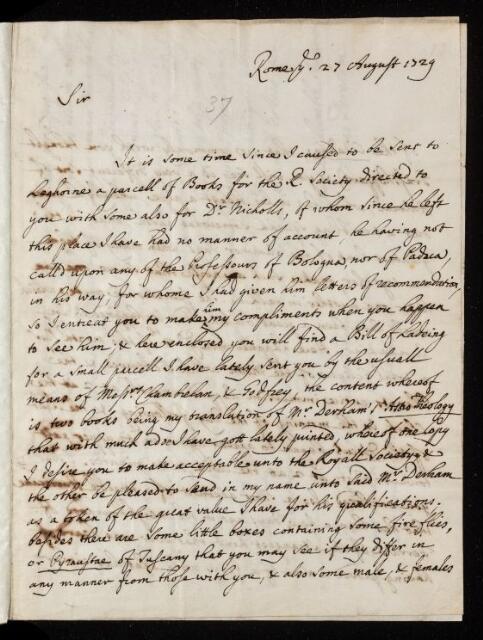 Rome ye. 27 August 1729
37
Sir
It is some time since I caused to be sent to
Leghorne a parcell of Books for the R. Society directed to
you with some also for Dr. Nicholls, of whom since he left
this place I have had no manner of account, he having not
call'd upon any of the Professours of Bologna, nor of Padua,
in his way, for whome I had given him letters of recommendation,
him
so I entreat you to make my compliments when you happen
to see him; & here enclosed you will find a Bill of Ladeing
for a small parcell I have lately sent you by the usuall
means of Messrs. Chambelan, & Godfrey the content whereof
is two books being my translation of Mr. Derham's Astro Theology
that with much ado I have gott lately printed, whereof one Copy
I desire you to make acceptable unto the Royall Society, &
the other be pleased to send in my name unto said Mr. Derham
as a token of the great value I have for his qualifications.
besides there are some little boxes containing some fire flies,
or Pyraustae of Tuscany that you may see if they differ in
any manner from those with you, & also some male, & females